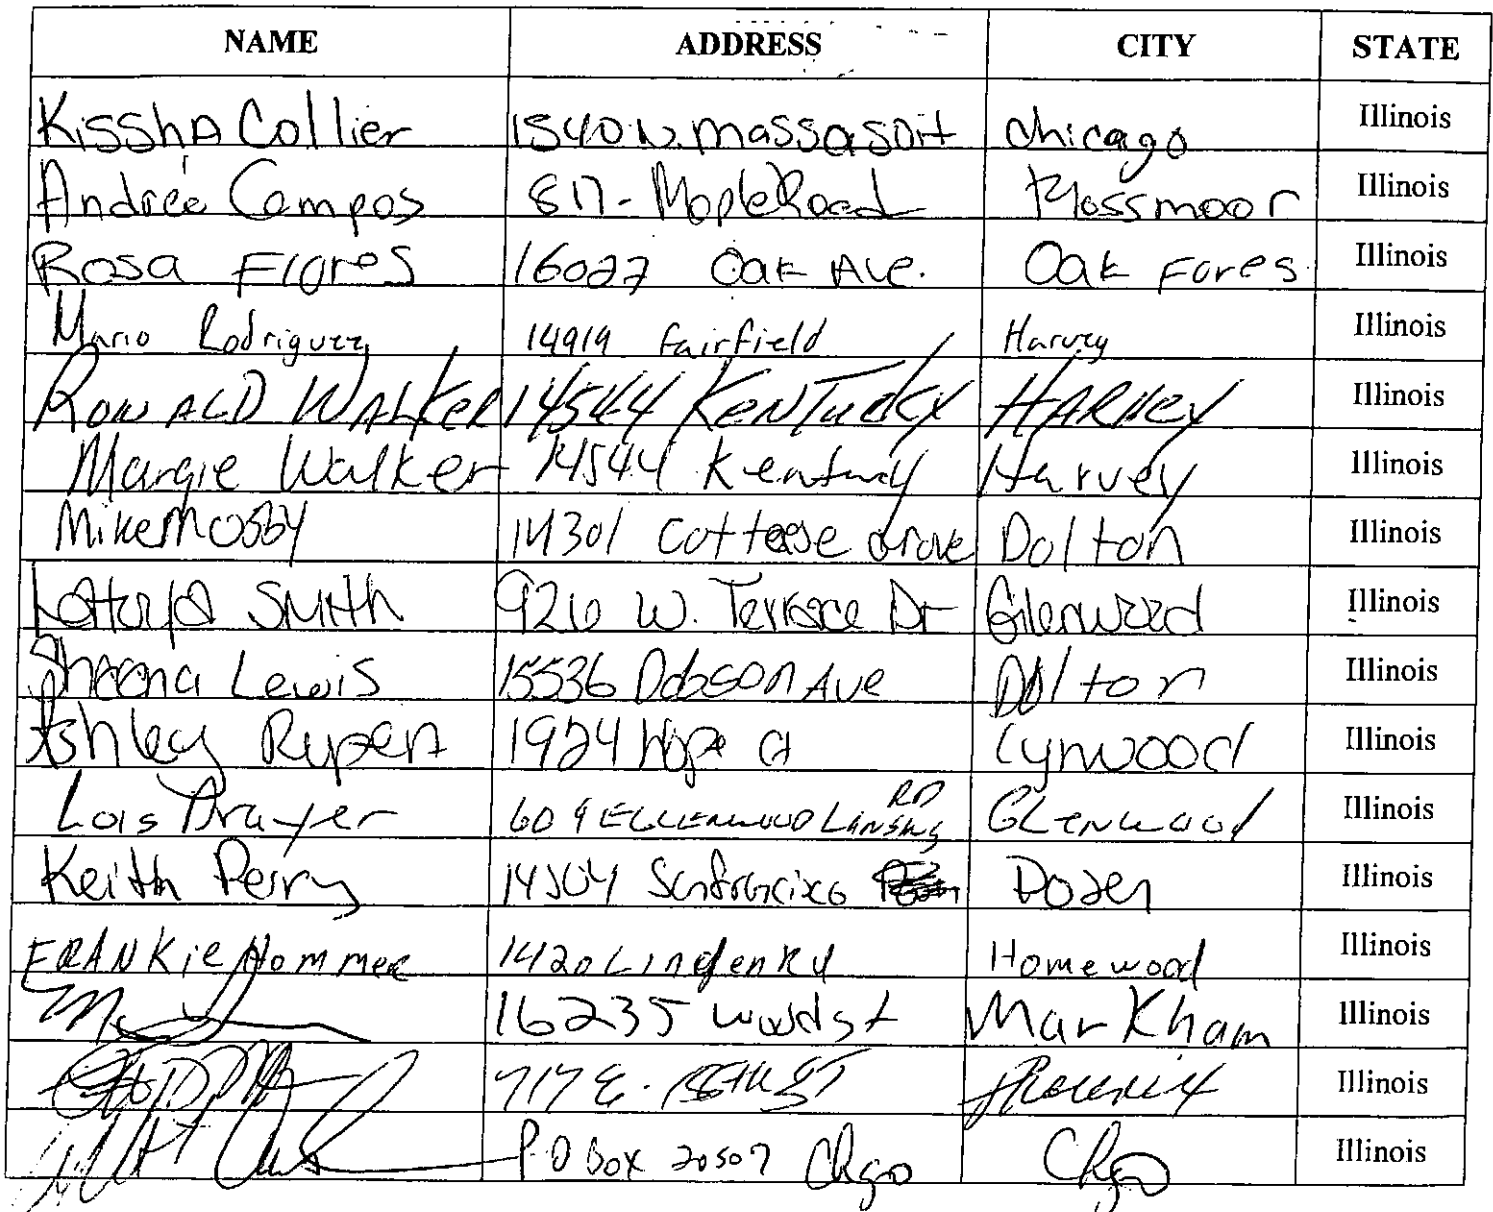 NAME ADDRESS CITY STATE
Kissha Collier 1540 N. Massasoit Chicago Illinois
Andreé Campos 817- Maple Road Flossmoor Illinois
Rosa Flores 16027 Oak Ave. Oak Fores Illinois
Mario Rodriguez 14919 Fairfield Harvey Illinois
RONALD WALKER 14544 KENTucky HARVEY Illinois
Margie Walker 14544 Kentucky Harvey Illinois
Mike Mosby 14301 Cottage Grove Dolton Illinois
Smith 926 W. Terrace Dr Glenwood Illinois
Sheena Lewis 15536 Dobson Ave Dolton Illinois
Ashley 1924 Hope Ct Lynwood Illinois
Lois Drayer RD
609 LANSING Glenwood Illinois
Keith Perry Posen Illinois
FRANKie Hommer 1420 Linden Rd Homewood Illinois
16235 Wood st Markham Illinois
717 E. ST Illinois
P.O Box 20507 Chgo Chgo Illinois